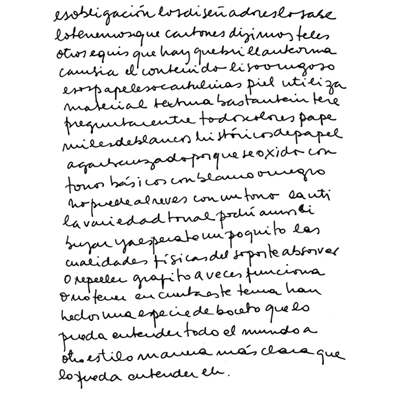 es obligación los diseñadores lo sabe
lo tenemos que cartones dijimos teles
otros equis que hay que brillante forma
cambia el contenido liso o rugoso
esos papeles o cartulinas piel utiliza
material textura bastante in tere
pregunta entre todos colores pape
miles de blancos históricos de papel
agarbanzado porque se oxido con
tonos básicos con blanco o negro
no puede al reves con un tono la uti
la variedad tonal podríamos di
bujar ya espera to un poquito las
cualidades físicas del soporte absorver
o repeller grafito a veces funciona
o no tener en cuenta este tema han
hechos una especie de boceto que lo
pueda entender todo el mundo a
otro estilo manera más clara que
lo pueda entender el.